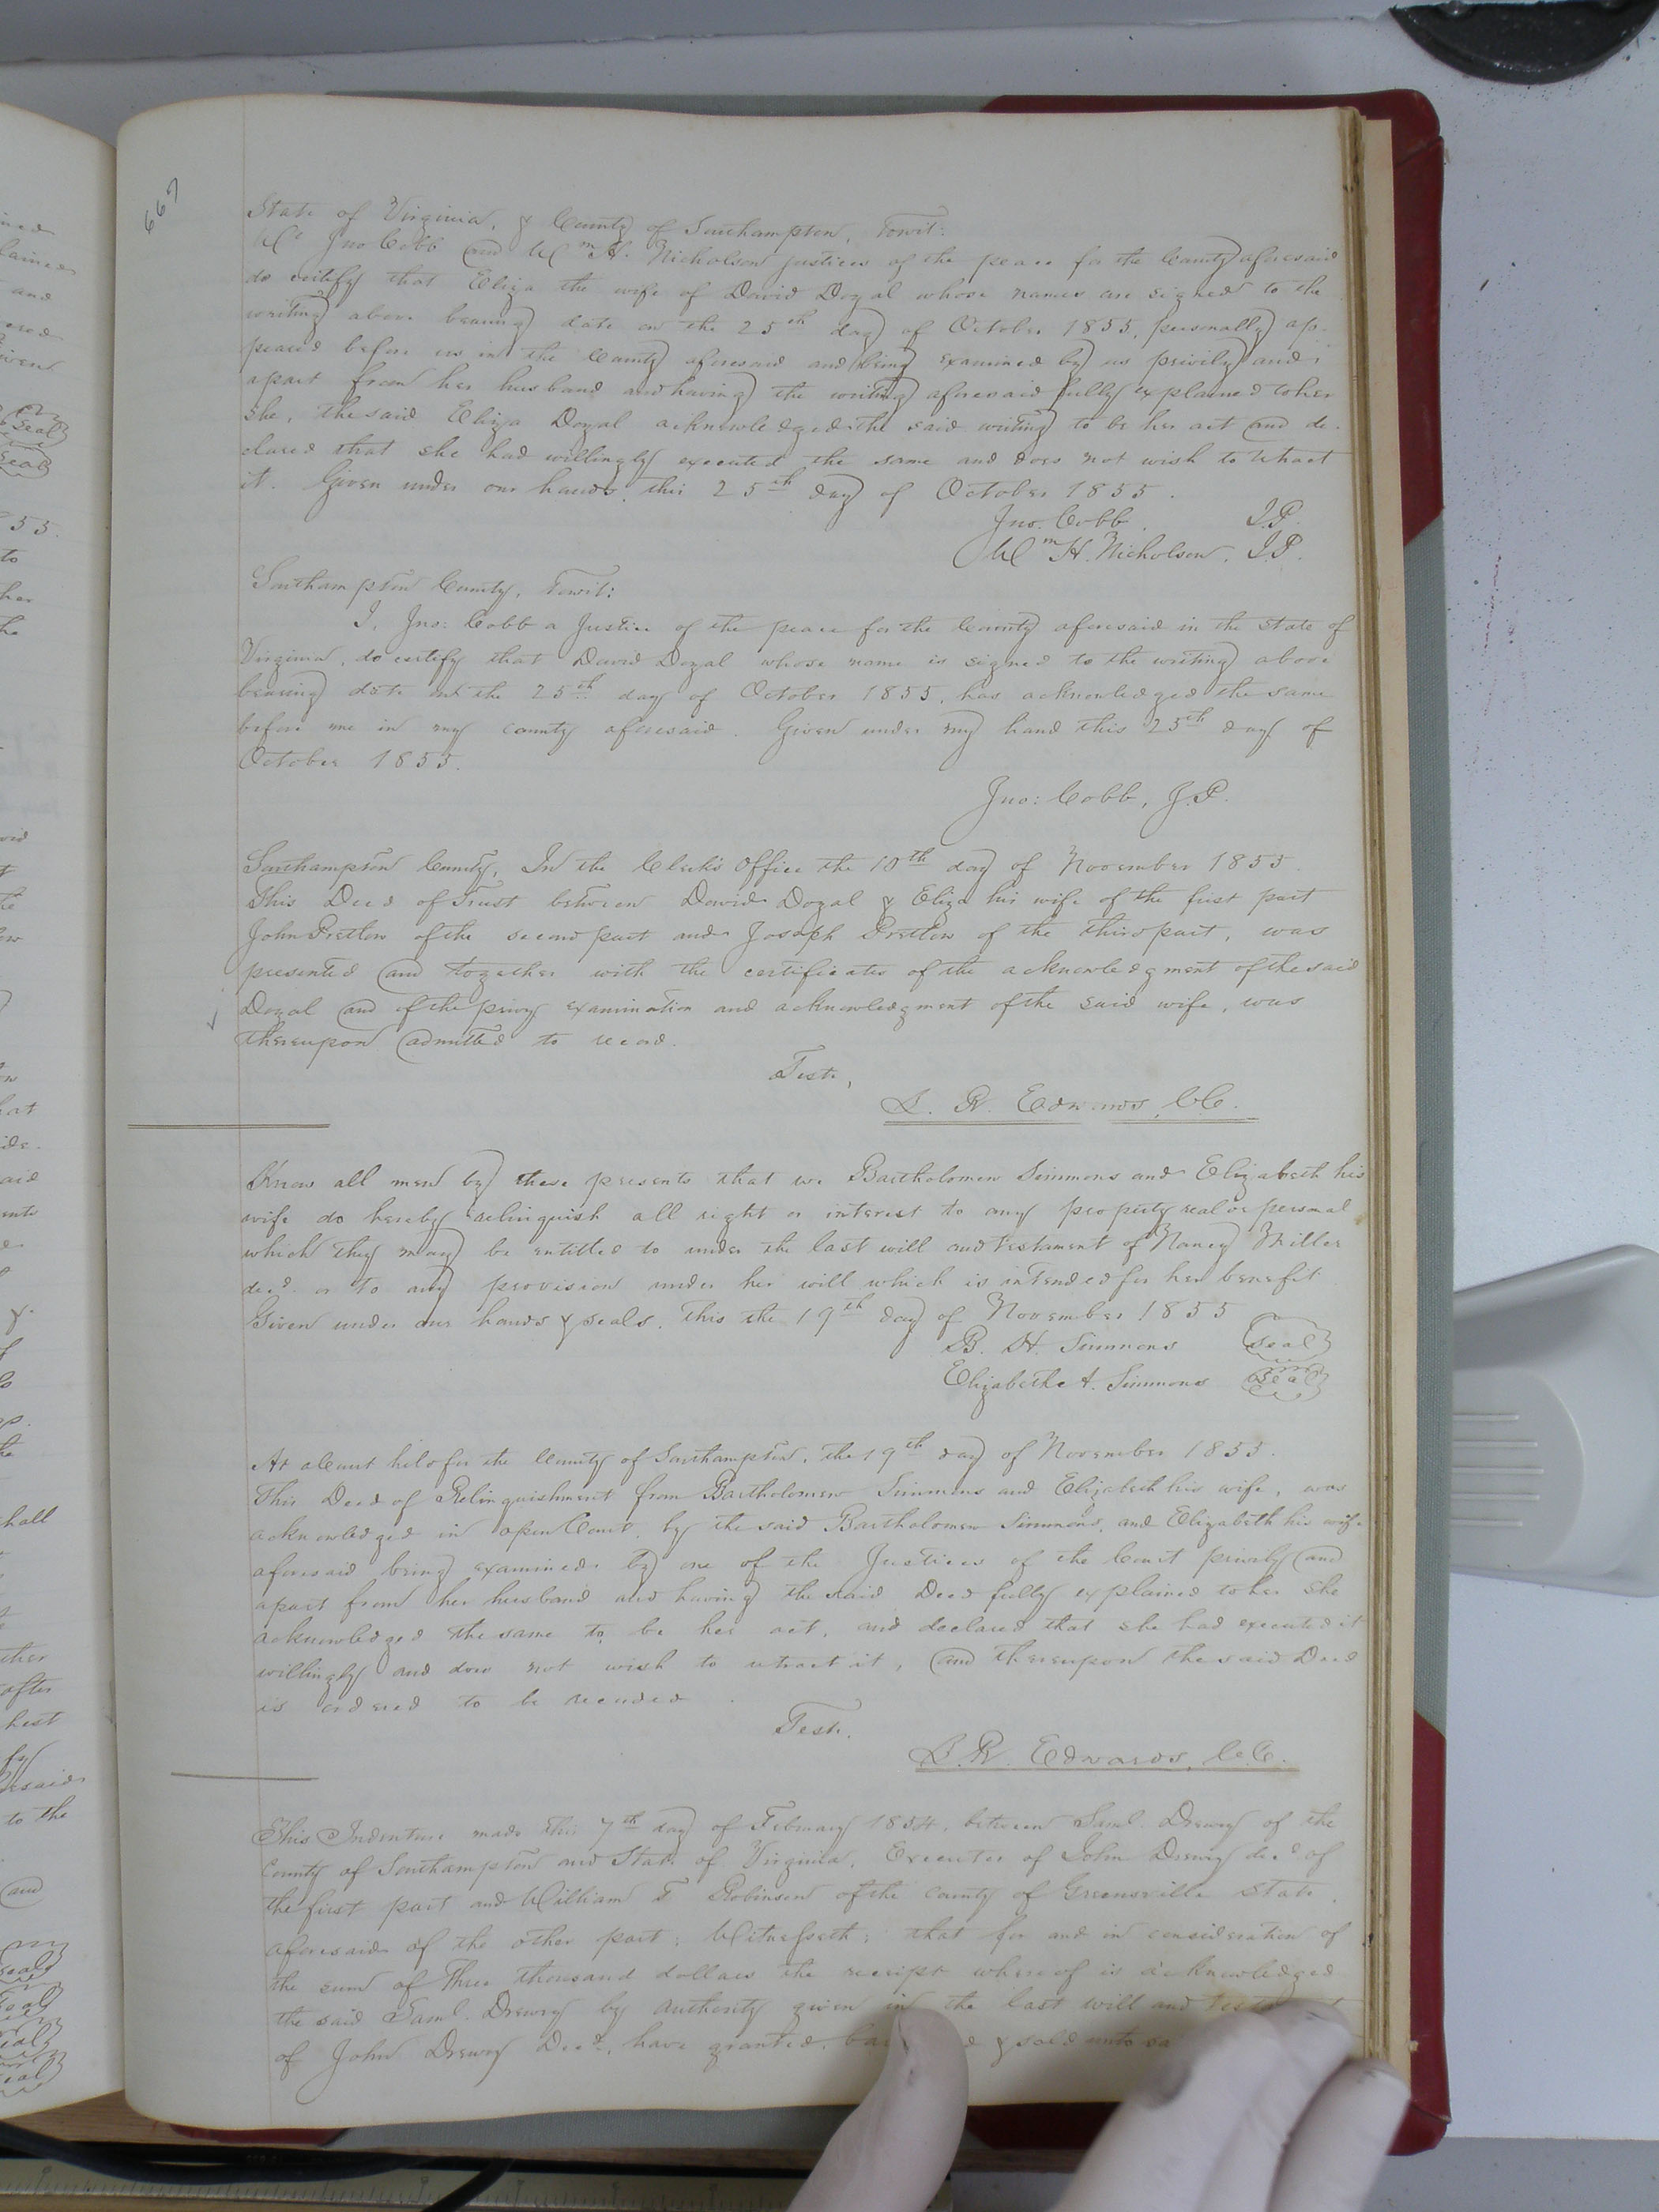 667
State of Virginia, & County of Southampton, Towit:
We Jno Cobb and Wm H. Nicholson justices of the peace for the County aforesaid
do certify that Eliza the wife of David Doyal whose names are signed to the
writing above bearing date on the 25th day of October 1855, personally ap-
peared before us in the County aforesaid and being examined by us privily and
apart from her husband and having the writing aforesaid fully explained to her
she, the said Eliza Doyal acknowledged the said writing to be her act and de-
clared that she had willingly executed the same and does not wish to retract
it. Given under our hands, this 25th day of October 1855.
Jno. Cobb. J.P.
Wm H. Nicholson. J.P.
Southampton County, Towit:
I, Jno: Cobb a Justice of the peace for the County aforesaid in the State of
Virginia, do certify that David Doyal whose name is signed to the writing above
bearing date on the 25th day of October 1855, has acknowledged the same
before me in my county aforesaid. Given under my hand this 25th day of
October 1855.
Jno: Cobb, J.P.
Southampton County, In the Clerk's Office the 10th day of November 1855
This Deed of Trust between David Doyal & Eliza his wife of the first part
John Pretlow of the second part and Joseph Pretlow of the third part, was
presented and together with the certificates of the acknowledgment of the said
Doyal and of the privy examination and acknowledgment of the said wife, was
thereupon admitted to record.
Test,
L. R. Edwards, C.C.
Know all men by these presents that we Bartholomew Simmons and Elizabeth his
wife do hereby relinquish all right or interest to any property real or personal
which they may be entitled to under the last will and testament of Nancy Miller
decd. or to any provision under her will which is intended for her benefit
Given under our hands & seals. This the 19th day of November 1855
B. H. Simmons seal
Elizabethe A. Simmons seal
At a Court held for the County of Southampton, the 19th day of November 1855.
This Deed of Relinquishment from Bartholomew Simmons and Elizabeth his wife, was
acknowledged in open Court, by the said Bartholomew Simmons, and Elizabeth his wife
aforesaid being examined by one of the Justices of the Court privily and
apart from her husband and having the said Deed fully explained to her she
acknowledged the same to be her act, and declared that she had executed it
willingly and does not wish to retract it, and thereupon the said Deed
is ordered to be recorded.
Test.
L. R. Edwards, C.C.
This Indenture made this 7th day of February 1854, between Saml. Drewry of the
County of Southampton and State of Virginia, Executor of John Drewry decd of
the first part and William T Robinson of the County of Greensville State
aforesaid of the other part; Witnesseth; that for and in consideration of
the sum of three thousand dollars the receipt whereof is acknowledged
the said Saml. Drewry by authority given in the last will and
of John Drewry Decd, have granted, & sold unto